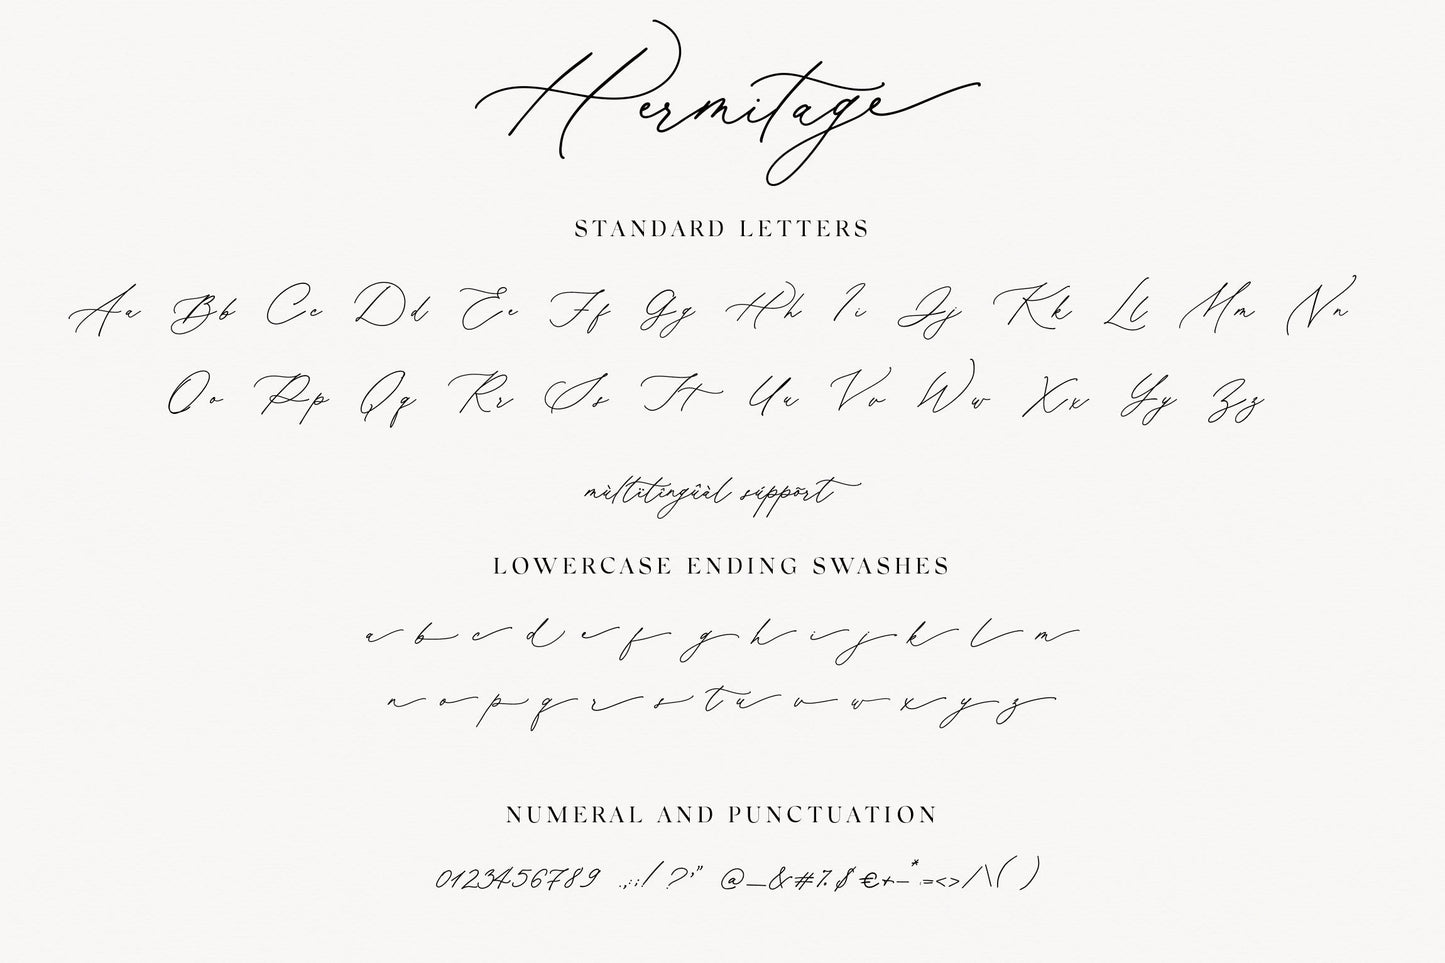 Hermitage
STANDARD LETTERS
Aa Bb Cc Dd Ee Ff Gg Hh Ii Jj Kk Ll Mm Nn
Oo Pp Qq Rr Ss Tt Uu Vv Ww Xx Yy Zz
mùltïtîngûàl súppõrt
LOWERCASE ENDING SWASHES
a b c d e f g h i j k l m
n o p q r s t u v w x y z
NUMERAL AND PUNCTUATION
0123456789 .,;:/ ?'" @_&#%$€+-*=<>/\( )